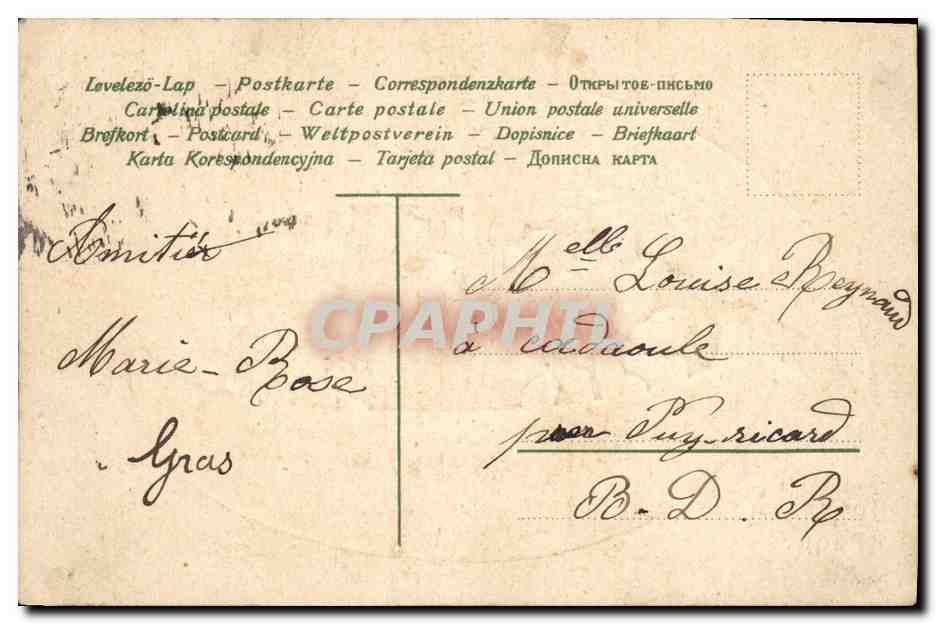 Levelező-Lap – Postkarte – Correspondenzkarte – Открытое-письмо
Cartolina postale – Carte postale – Union postale universelle
Brefkort – Postcard – Weltpostverein – Dopisnice – Briefkaart
Karta Korespondencyjna – Tarjeta postal – Дописна карта
Amitiés
Marie-Rose
Gras
Melle Louise Reynaud
à
par Puy-ricard
B. D. R
CPARHIL